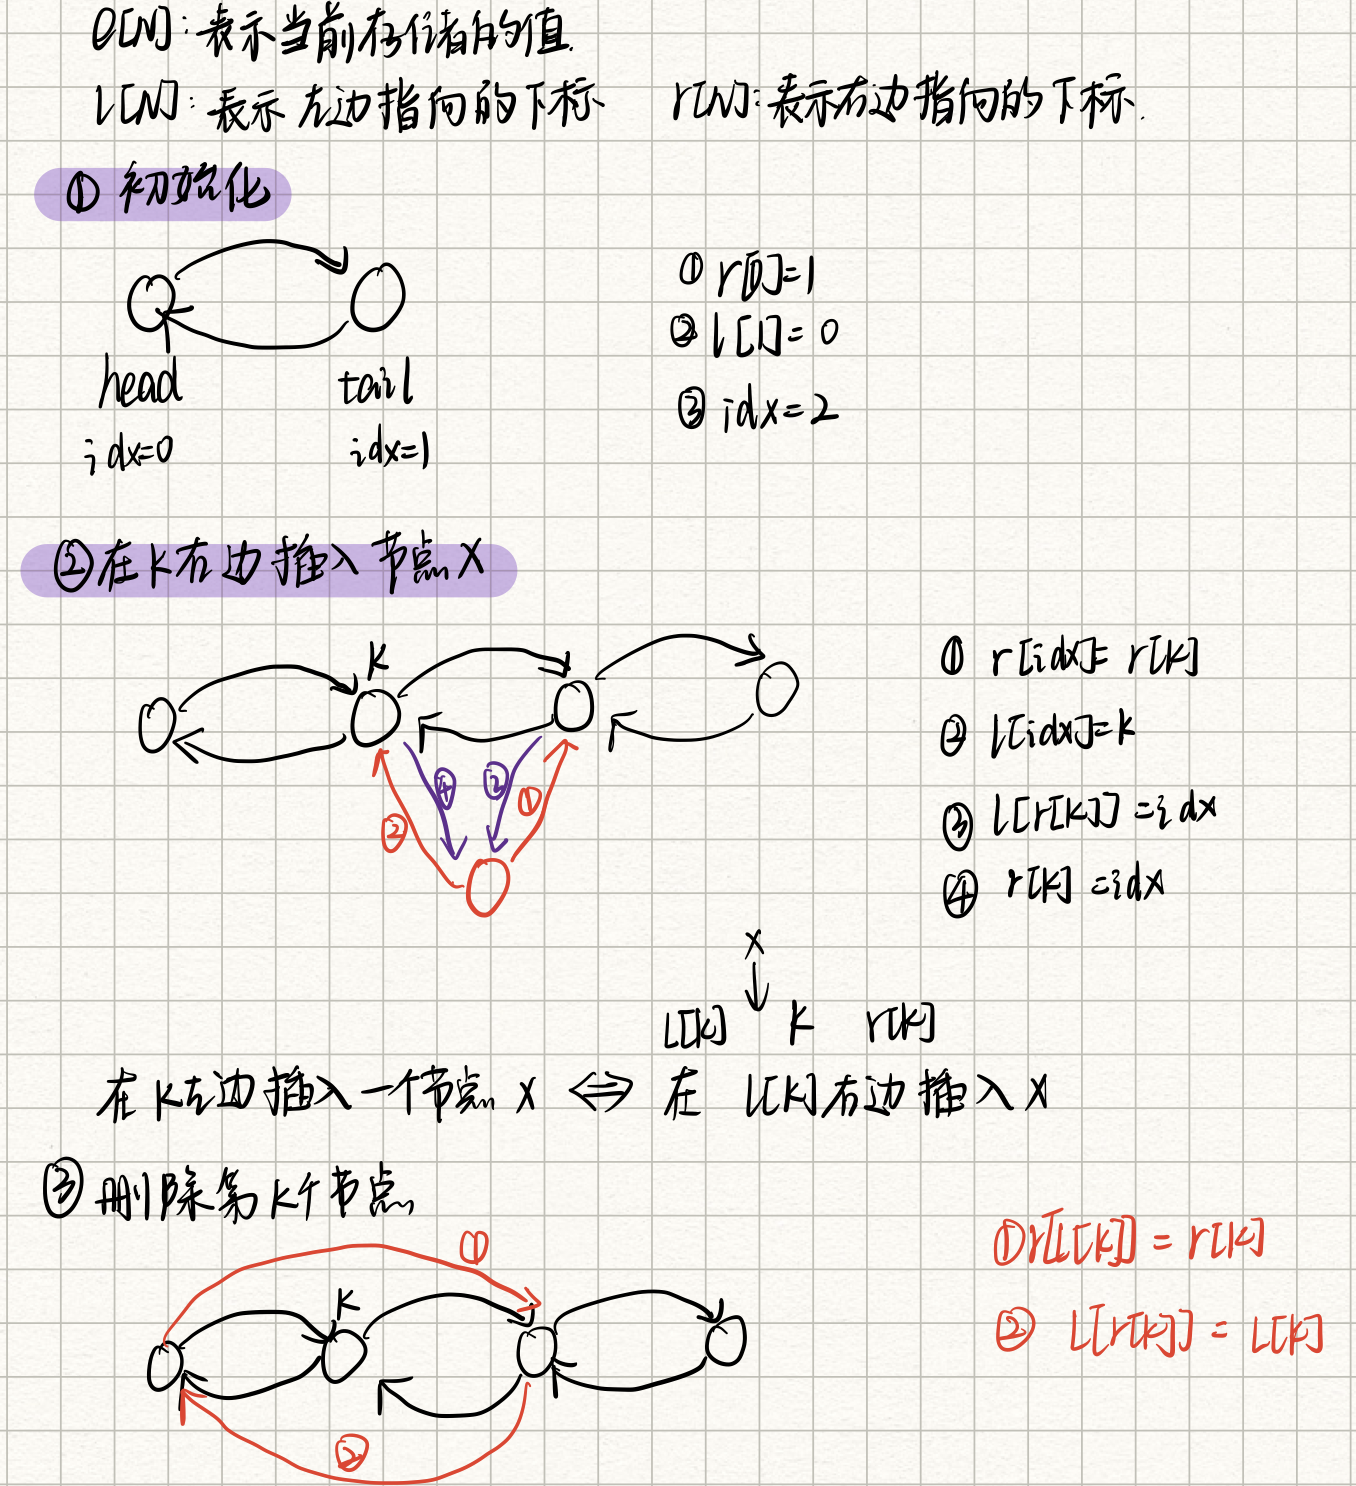 e[N]:表示当前存储的值.
l[N]:表示左边指向的下标 r[N]:表示右边指向的下标.
① 初始化
① r[0]=1
② l[1]=0
head tail
③ idx=2
idx=0 idx=1
②在k右边插入节点x
k
① r[idx]=r[k]
② l[idx]=k
④ ② ①
②
③ l[r[k]]=idx
④ r[k]=idx
x
l[k] k r[k]
在k左边插入一个节点x ⇔ 在 l[k]右边插入x
③ 删除第k个节点
①
①r[l[k]]=r[k]
k
② l[r[k]]=l[k]
②